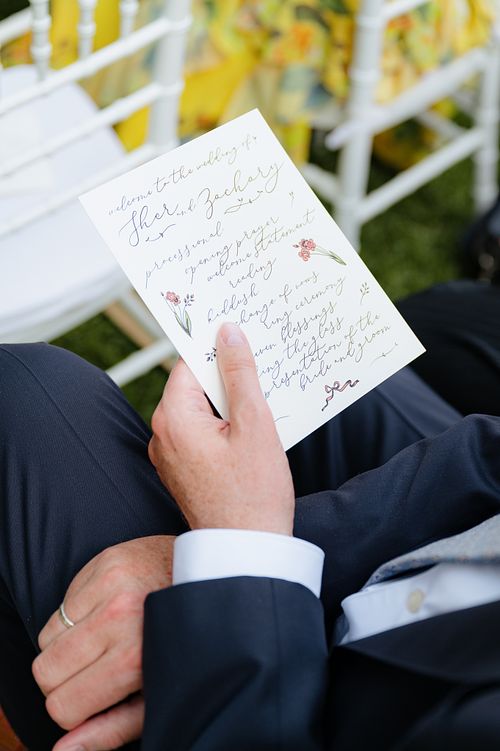 welcome to the wedding of
Sher and Zachary
processional
opening prayer
welcome statement
reading
kiddush
change of vows
ring ceremony
even blessings
ing the glass
presentation of the
bride and groom